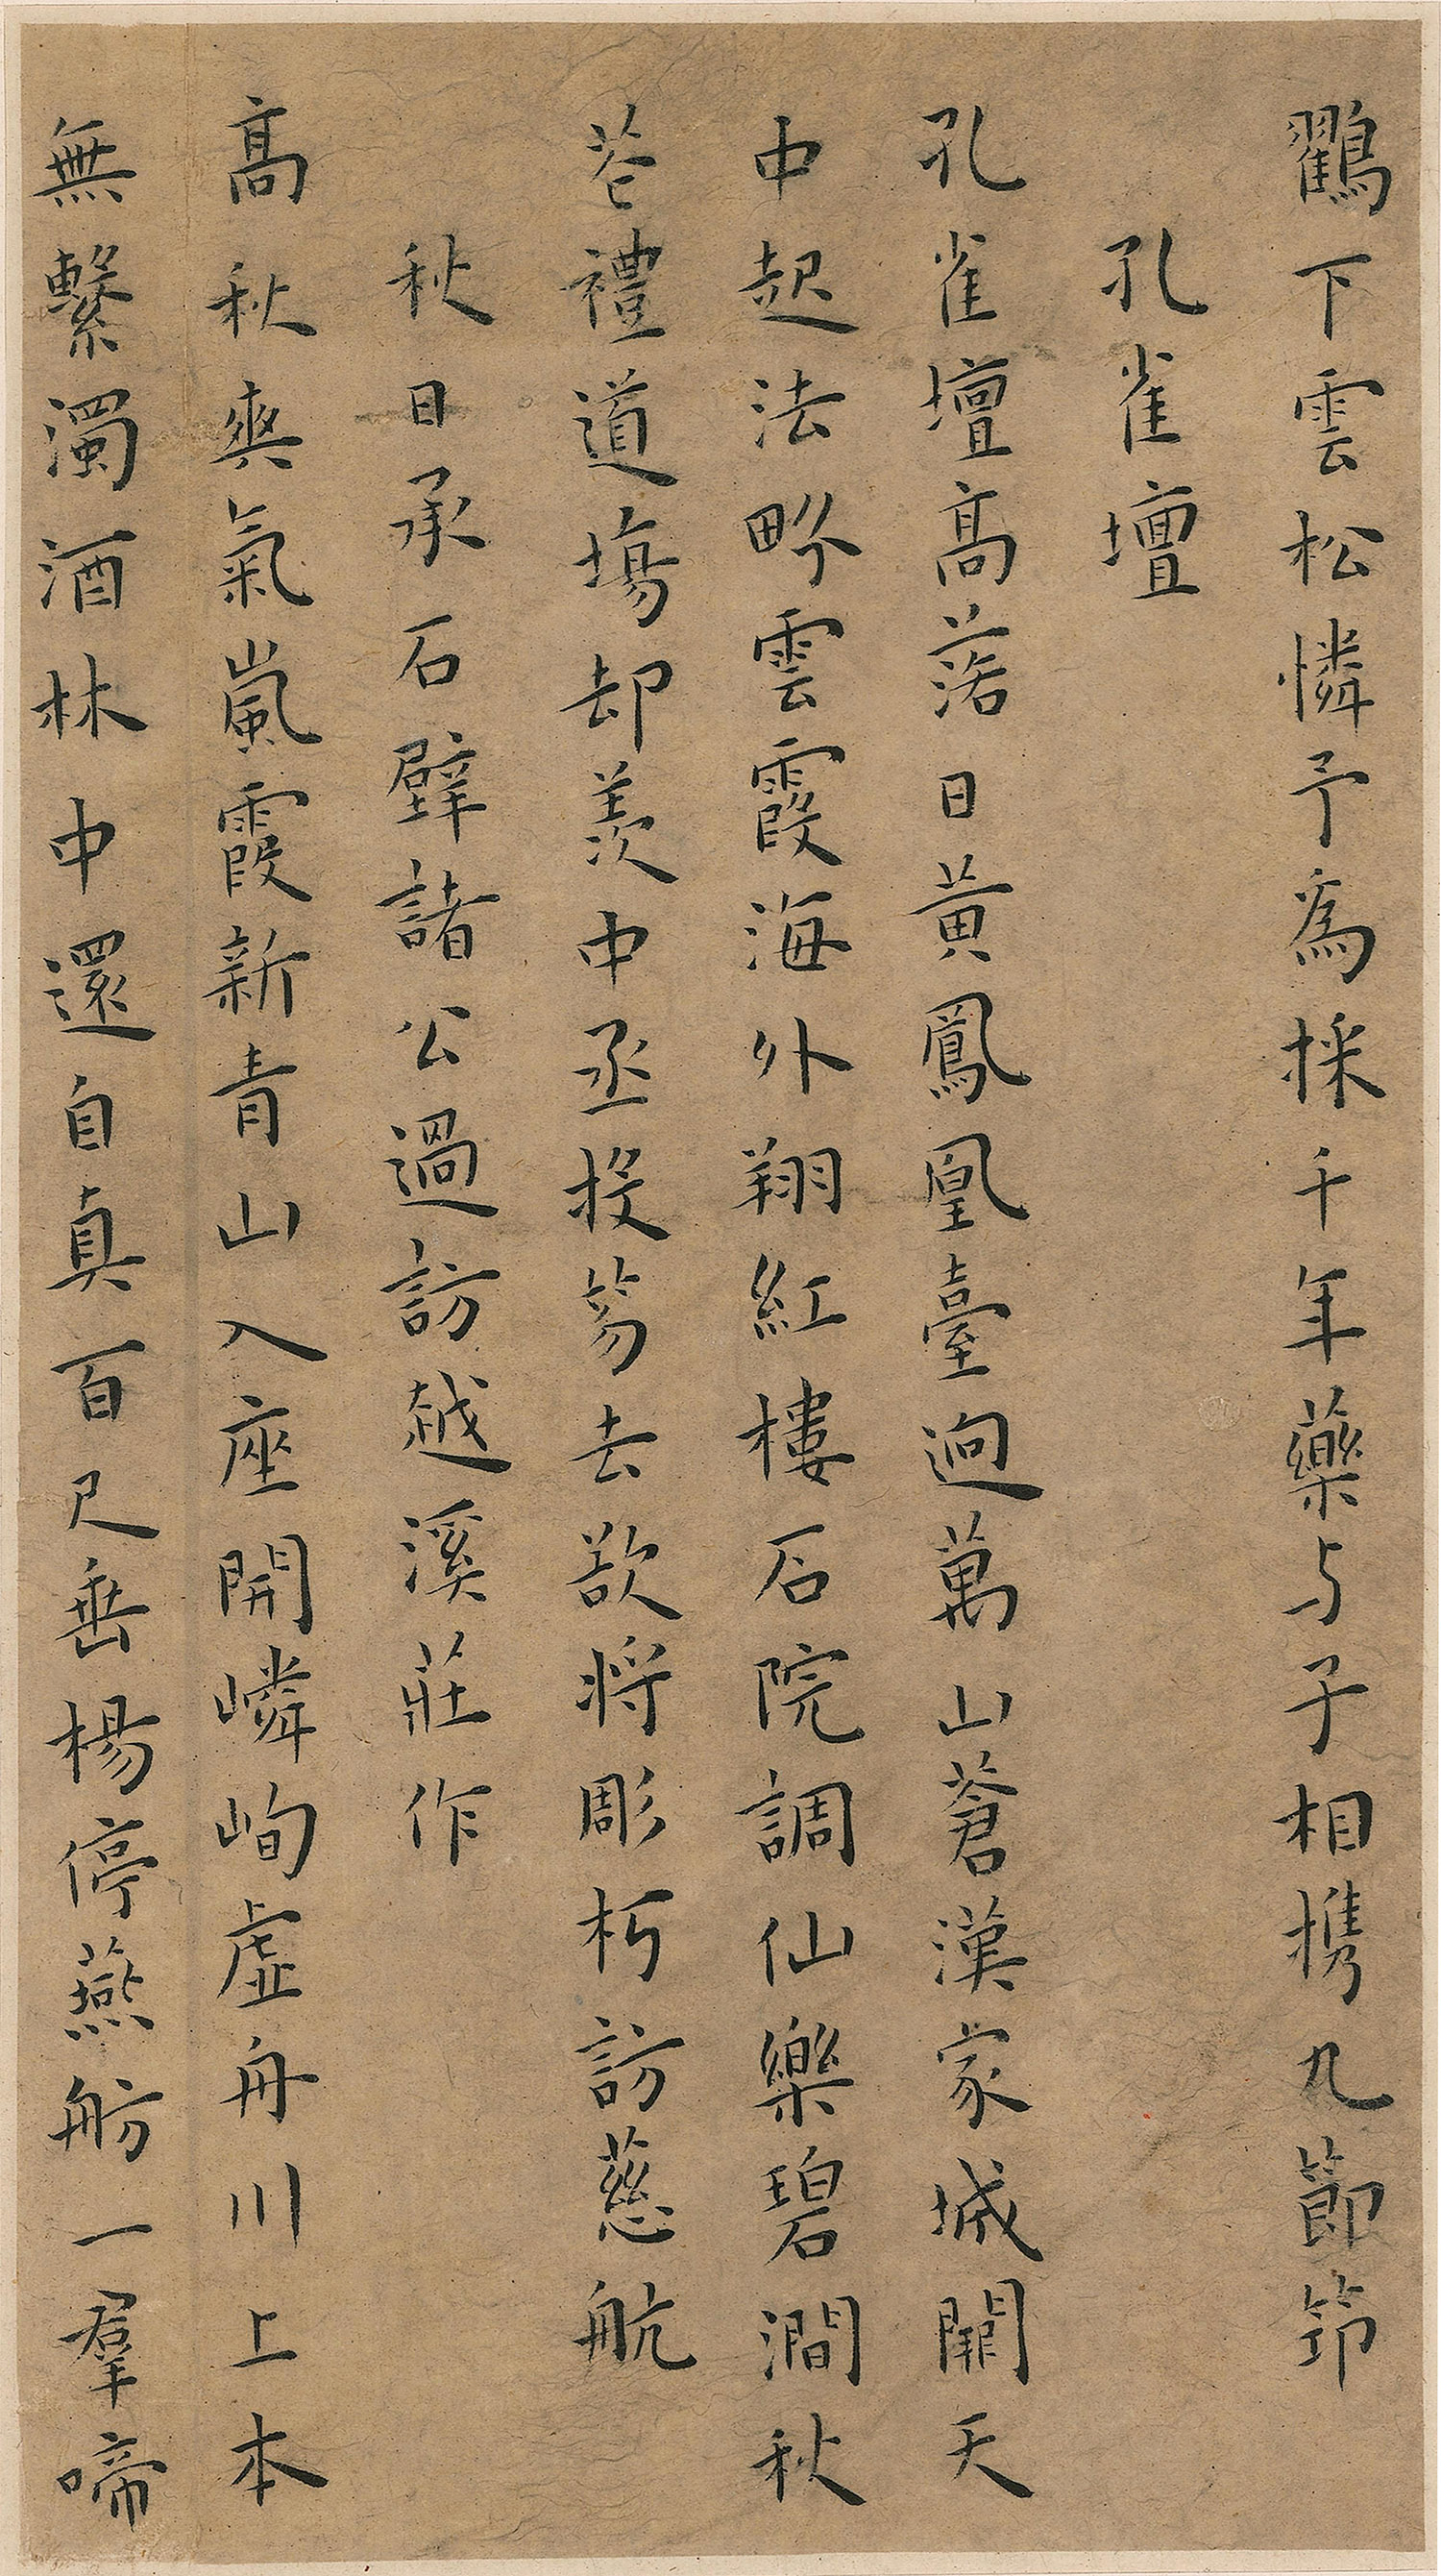 鸐下雲松憐予為採千年藥与子相携九節筇
孔雀壇
孔雀壇高落日黄鳳凰臺迥萬山蒼漢家城闕天
中起法畍雲霞海外翔紅樓石院調仙樂碧澗秋
芲禮道塲却羡中丞投笏去欲将彫朽訪慈航
秋日承石壁諸公過訪越溪莊作
髙秋爽氣嵐霞新青山入座開嶙峋虛舟川上本
無繫濁酒林中還自真百尺垂楊停燕舫一羣啼